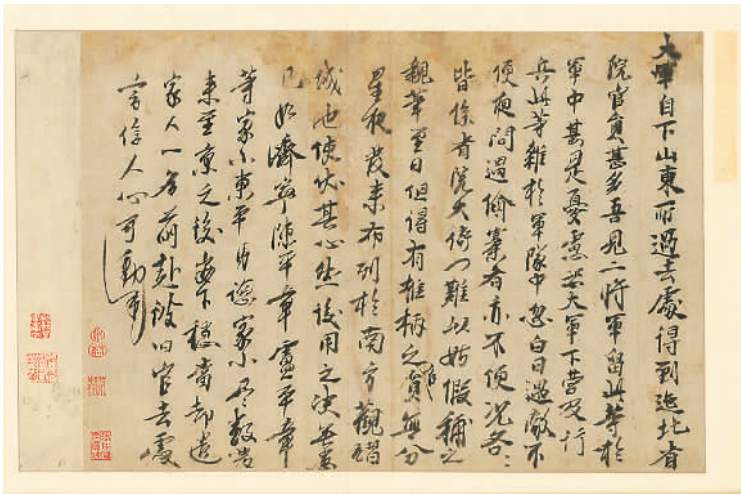 大軍自下山東所過去處得到迤北省
院官員甚多吾見二將軍留此等於
軍中甚是憂慮恐大軍下營及行
兵此等雜於軍隊中忽白日遇敵不
便夜間遇偷寨者亦不便况各〻
皆係省院大衙門難以姑假補之
親筆至日但得有權柄之無分
星夜發來布列於南方觀
城池使伏其心然後用之決無患
已如濟寧陳平章盧平章
等家小東平馬德家小尽數發
來至京之後安下穩當却遣
家人一名前赴彼旧官去處
言信人心可動